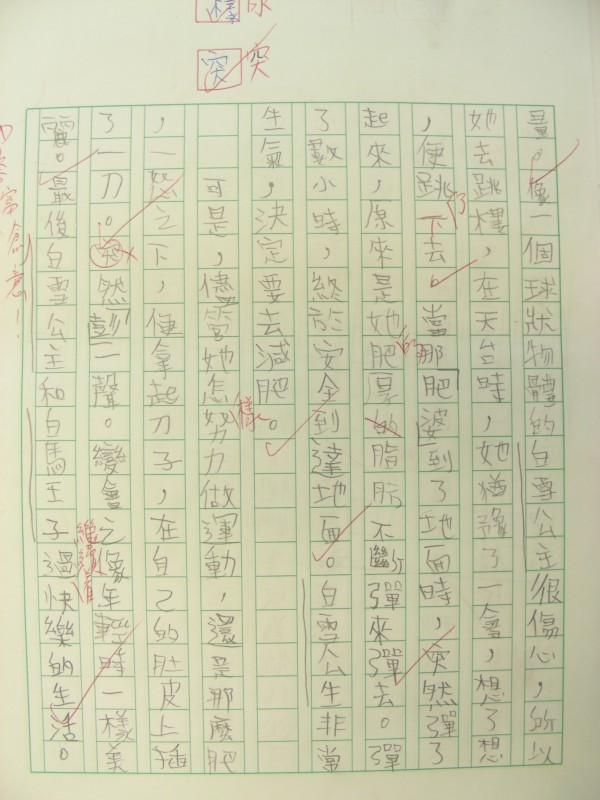 樣
突 突
量。像一個球狀物體的白雪公主很傷心，所以
她去跳樓，在天台時，她猶豫了一會，想了想
，便跳了下去。當那肥婆到了地面時，突然彈了
起來，原來是她肥厚的脂肪不斷彈來彈去。彈
了數小時，終於安全到達地面。白雪公生非常
生氣，決定要去減肥。
可是，儘管她怎樣努力做運動，還是那麼肥
，一怒之下，便拿起刀子，在自己的肚皮上插
了一刀。突然彭一聲。變會之像年輕時一樣美
麗。最後白雪公主和白馬王子繼續着過快樂的生活。
富創意！